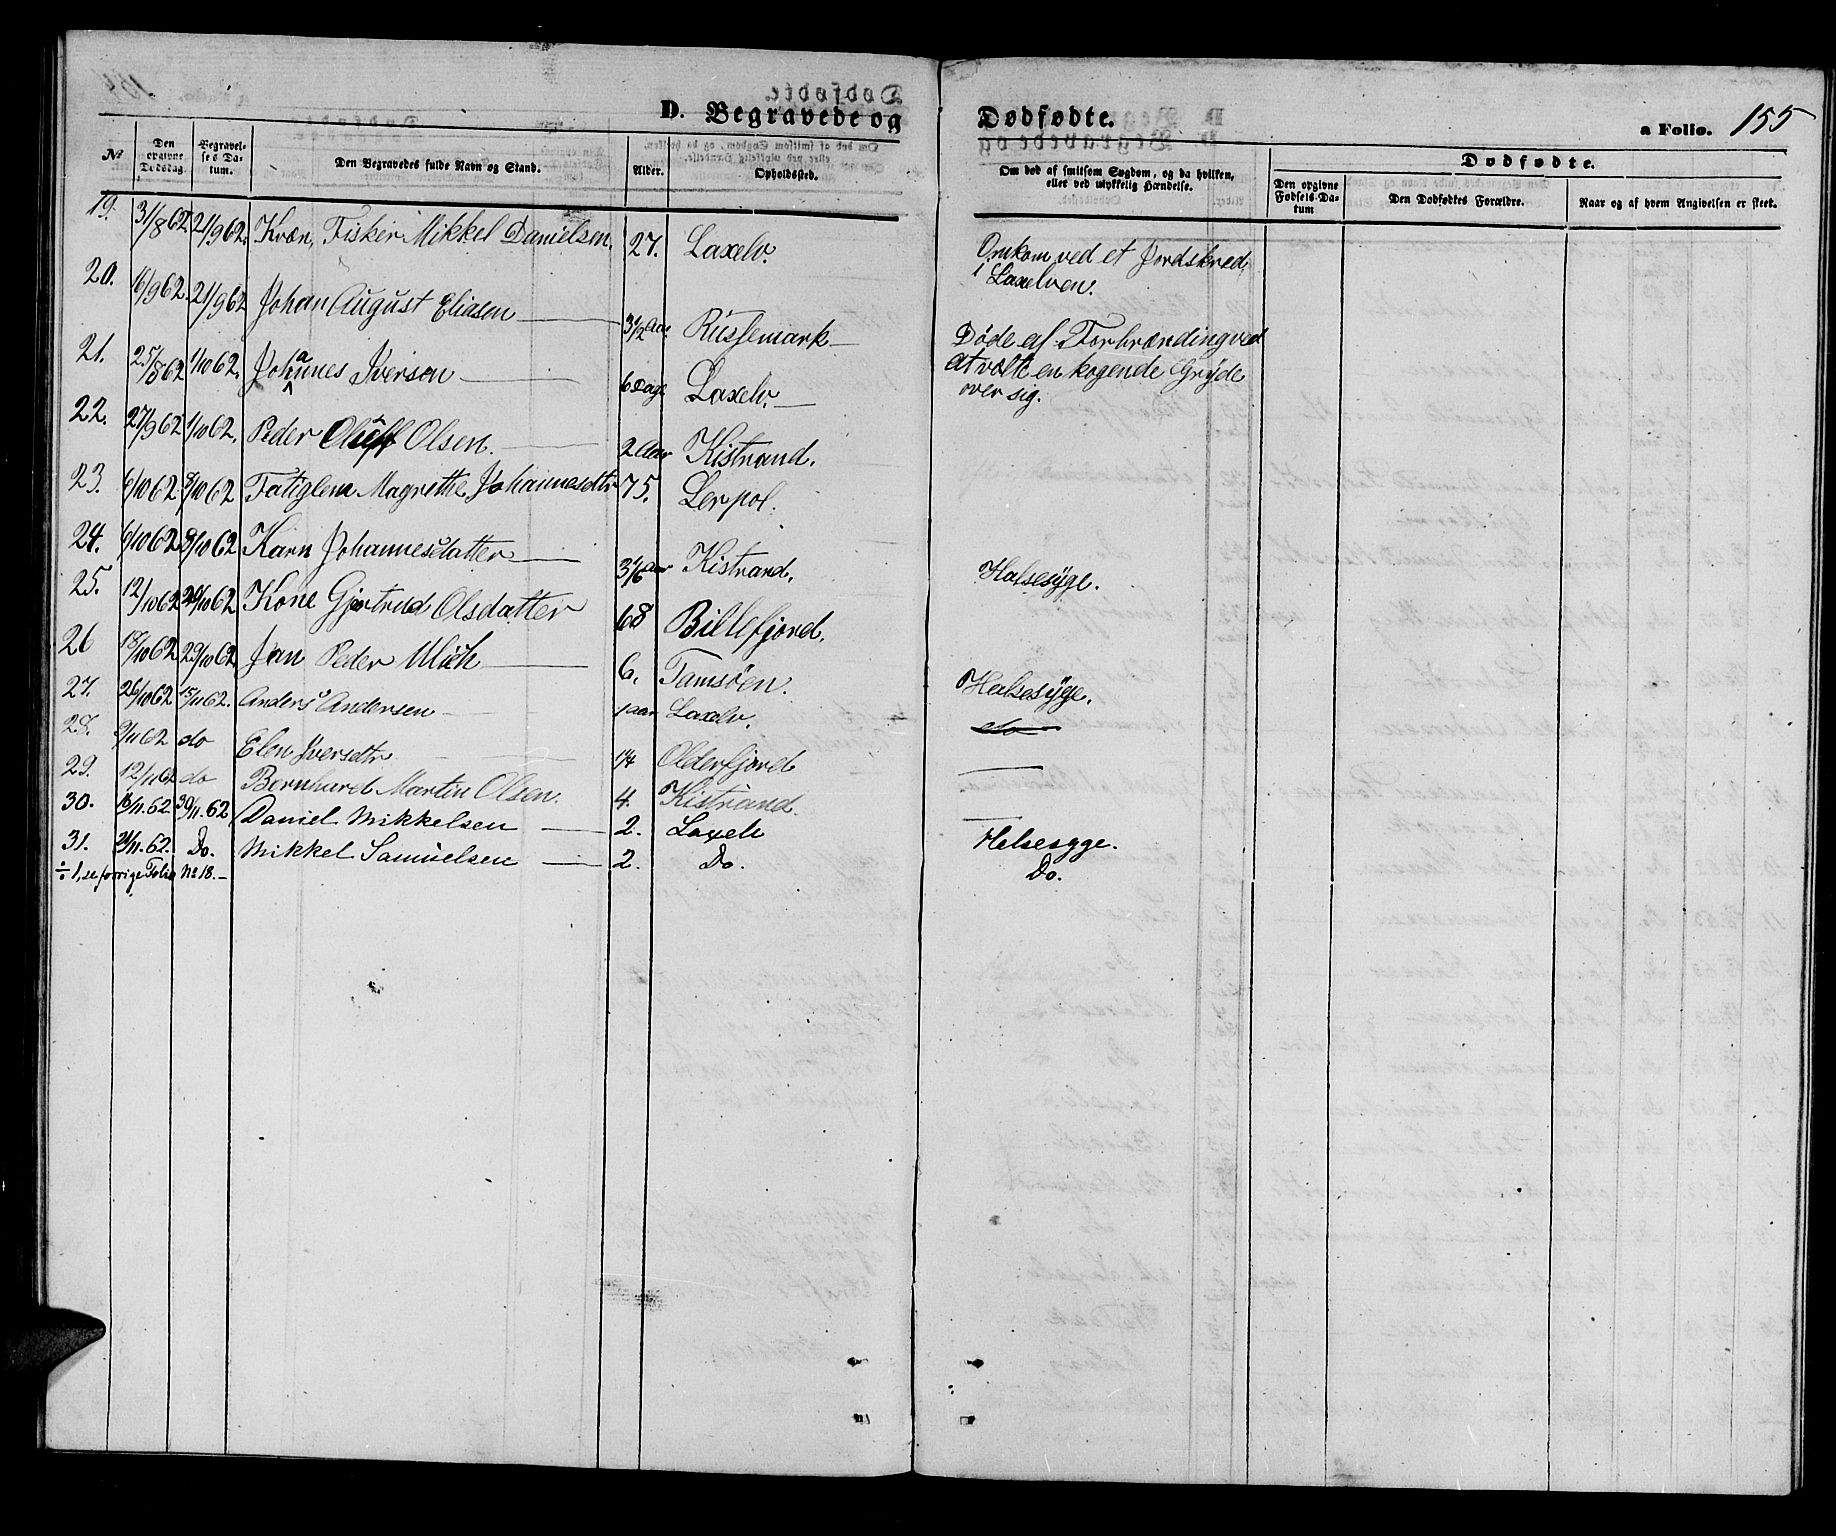 D. Begravede og Dødfødte.
a Folio. 155
№ Den opgivne Dødsdag. Begravelses Datum. Den Begravedes fulde Navn og Stand. Alder. Opholdssted. Om død af smitsom Sygdom, og da hvilken, eller ved ulykkelig Hændelse. Dødfødte.
Den opgivne Fødsels-Datum Den Dødfødtes Forældre. Naar og af hvem Angivelsen er skeet.
19. 31/8 62 21/9 62. Kvæn, Fisker Mikkel Danielsen. 27. Laxelv. Omkom ved et Jordskred
i Laxelven.
20. 16/9 62. 21/9 62 Johan August Eliasen 3 1/2 Aar Russemark Døde af Forbrænding ved
at vælte en kogende Gryde
over sig.
21. 25/8 62 1/10 62. Johannes Iversen 6 Dage Laxelv.
22. 27/9 62 1/10 62. Peder Olsen. 2 Aar Kistrand.
23. 6/10 62. 8/10 62 Magrethe Johannesdtr 75. Lerpol.
24. 6/10 62 9/10 62 Karn Johannesdatter Kistrand. Halsesyge.
25. 12/10 62 29/10 62 Kone Gjertrud Olsdatter 68 Billefjord.
26 18/10 62 29/10 62 Jan Peder Ulich 6. Tamsøen. Halsesyge.
27. 26/10 62 15/11 62. Anders Andersen 1 aar Laxelv. do
28. 9/11 62 do Elen Iversdtr 1/4 Olderfjord
29. 12/11 62 do Bernhard Martin Olsen. 4. Kistrand
30. 16/11. 62 30/11. 62 Daniel Mikkelsen 2. Laxelv Halsesyge.
31. 21/11. 62. Do. Mikkel Samuelsen 2. Do. Do.
÷ 1, se forrige Folio № 18.